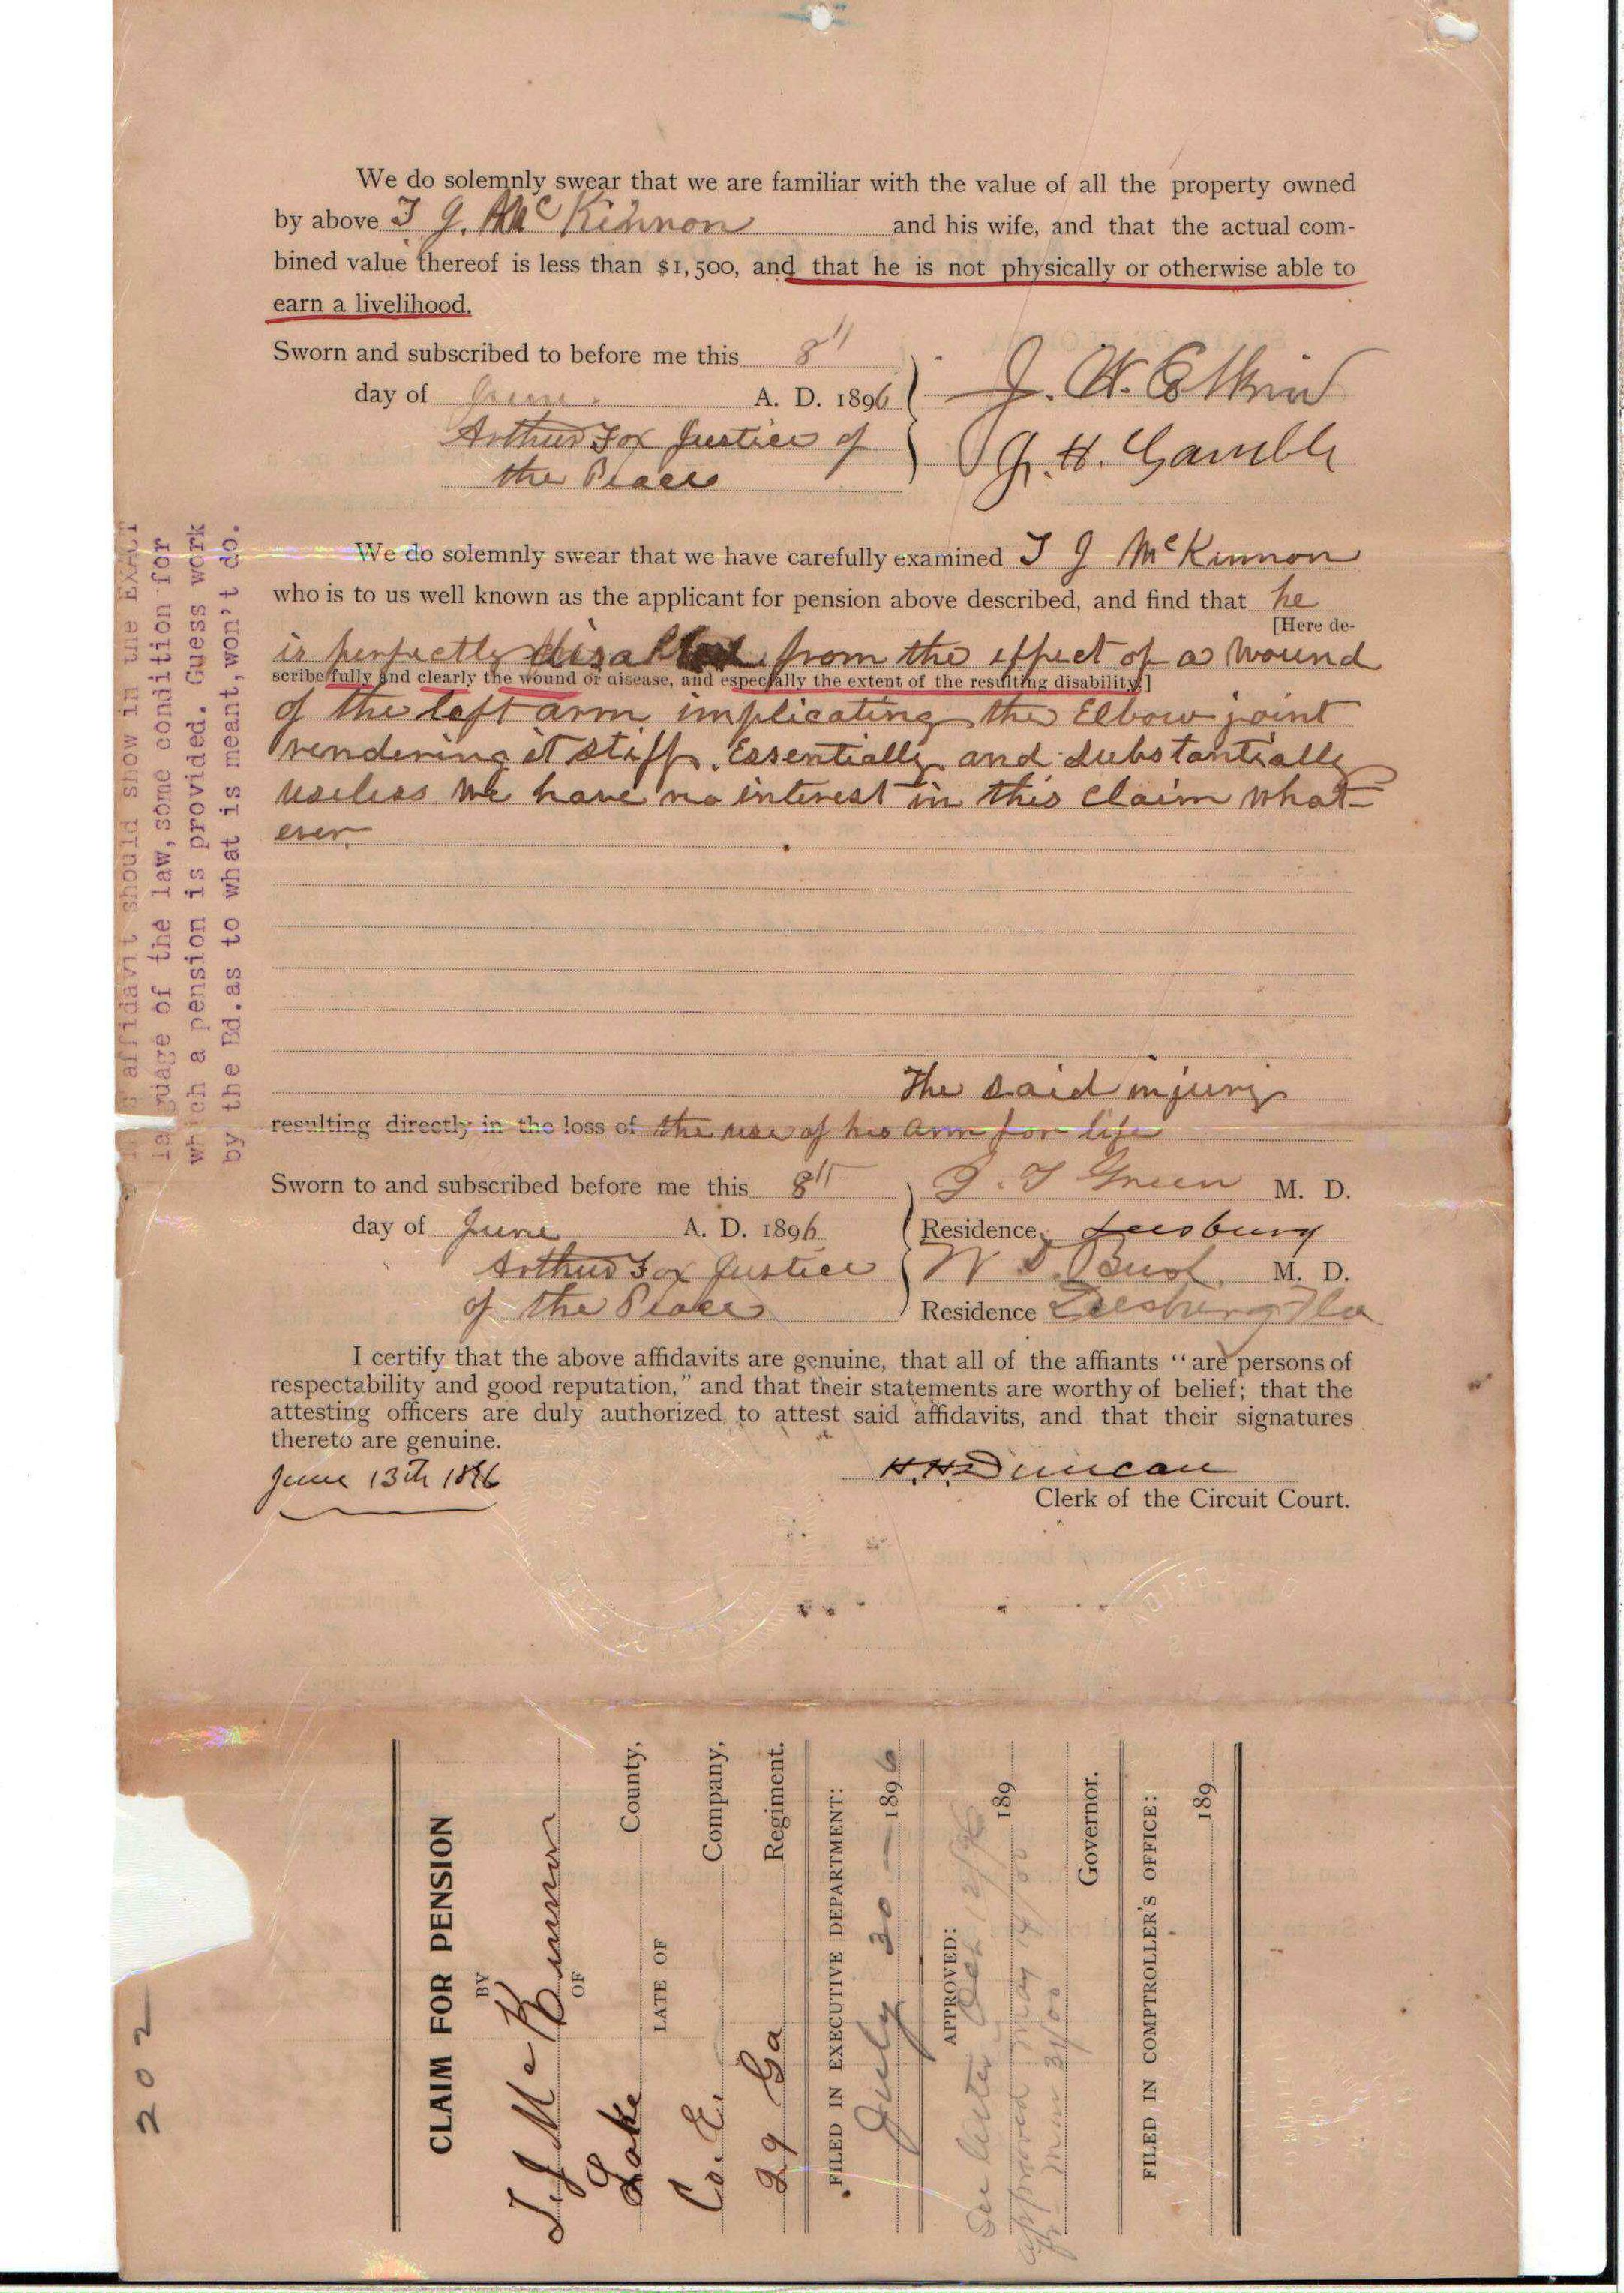 We do solemnly swear that we are familiar with the value of all the property owned
by above T J. McKinnon and his wife, and that the actual com-
bined value thereof is less than $1,500, and that he is not physically or otherwise able to
earn a livelihood.
Sworn and subscribed to before me this 8"
day of June. A. D. 1896
Arthur Fox Justice of
the Peace
J. H. Gamble
We do solemnly swear that we have carefully examined T J McKinnon
who is to us well known as the applicant for pension above described, and find that he
[Here de-
is perfectly disabled from the effect of a wound
scribe fully and clearly the wound or disease, and especially the extent of the resulting disability.]
of the left arm implicating the Elbow joint
rendering it stiff. Essentially and Substantially
useless We have no interest in this claim what-
ever.
The said injury
resulting directly in the loss of the use of his arm for life
Sworn to and subscribed before me this 8th
day of June A. D. 1896
Arthur Fox Justice
of the Peace
G. T Green M. D.
Residence, Leesburg
M. D.
Residence Leesburg Fla
I certify that the above affidavits are genuine, that all of the affiants "are persons of
respectability and good reputation," and that their statements are worthy of belief; that the
attesting officers are duly authorized to attest said affidavits, and that their signatures
thereto are genuine.
June 13th 1896
H. H. Duncan
Clerk of the Circuit Court.
affidavit should show in the EXACT
language of the law, some condition for
which a pension is provided. Guess work
by the Bd. as to what is meant, won't do.
202
CLAIM FOR PENSION
BY
T. J McKinnon
OF
Lake County,
LATE OF
Co. E. Company,
29 Ga Regiment.
FILED IN EXECUTIVE DEPARTMENT:
July 30 — 1896
APPROVED:
See letter Oct 12/96
approved May 14/00 189
Governor.
FILED IN COMPTROLLER'S OFFICE:
189